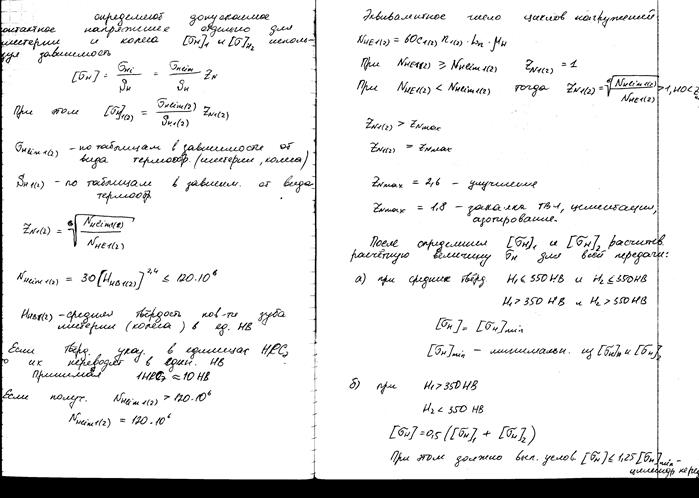 определяют допускаемое
контактное напряжение отдельно для
шестерни и колеса [σн]1 и [σ]н2 исполь-
зуя зависимость
[σн] = σнi / Sн = σнlim / Sн ZN
При этом [σн]1(2) = σнlim1(2) / Sн1(2) ZN1(2)
σнlim1(2) - по таблицам в зависимости от
вида термообр. (шестерни, колеса)
Sн1(2) - по таблицам в зависим. от вида
термообр.
ZN1(2) = ⁶√(NHlim1(2) / NHE1(2))
NHlim1(2) = 30[HHB1(2)]^2,4 ≤ 120·10^6
HHB1(2) - средняя твёрдость пов-ти зуба
шестерни (колеса) в ед. HB
Если твёрд. указ. в единицах HRCэ
то их переводят в един. HB
Принимая 1HRCэ ≈ 10 HB
Если получ. NHlim1(2) > 120·10^6
NHlim1(2) = 120·10^6
Эквивалентное число циклов нагружений
NHE1(2) = 60c1(2) n1(2)·Ln·μн
При NHE1(2) ≥ NHlim1(2) ZN1(2) = 1
При NHE1(2) < NHlim1(2) тогда ZN1(2) = ⁶√(NHlim1(2) / NHE1(2)) > 1, но < Z
ZN1(2) > ZNmax
ZN1(2) = ZNmax
ZNmax = 2,6 - улучшение
ZNmax = 1,8 - закалка ТВЧ, цементация,
азотирование.
После определения [σн]1 и [σн]2 расчитыв.
расчётную величину σн для всей передачи:
а) при средних твёрд H1 ≤ 350 HB и H2 ≤ 350 HB
H1 > 350 HB и H2 > 350 HB
[σн] = [σн]min
[σн]min - минимальн. из [σн]1 и [σн]2
б) при H1 > 350 HB
H2 < 350 HB
[σн] = 0,5([σн]1 + [σн]2)
При этом должно вып. услов [σн] ≤ 1,25[σн]min -